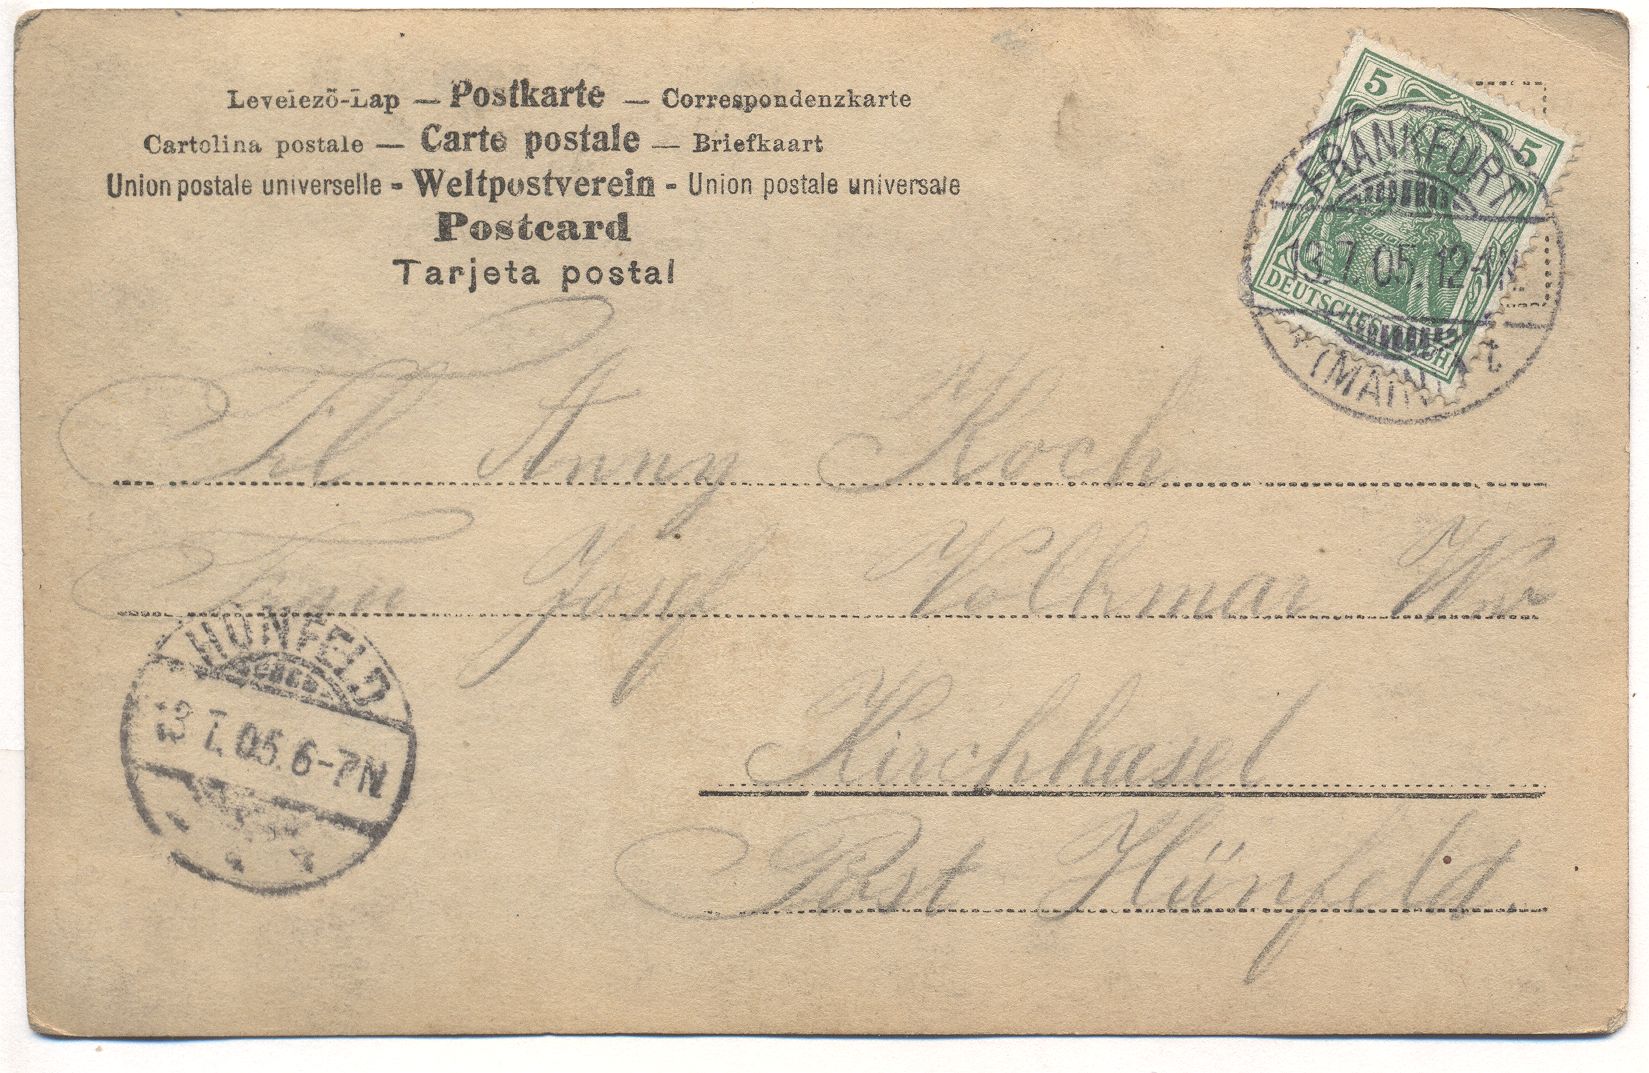 Levelező-Lap — Postkarte — Correspondenzkarte
Cartolina postale — Carte postale — Briefkaart
Union postale universelle - Weltpostverein - Union postale universale
Postcard
Tarjeta postal
5 5
DEUTSCHES REICH
FRANKFURT
13.7.05.12-1N.
(MAIN) 1 t
Frl Anny Koch
Frau Josef Volkmar Ww
HÜNFELD
13 7. 05. 6-7N
Kirchhasel
Post Hünfeld.